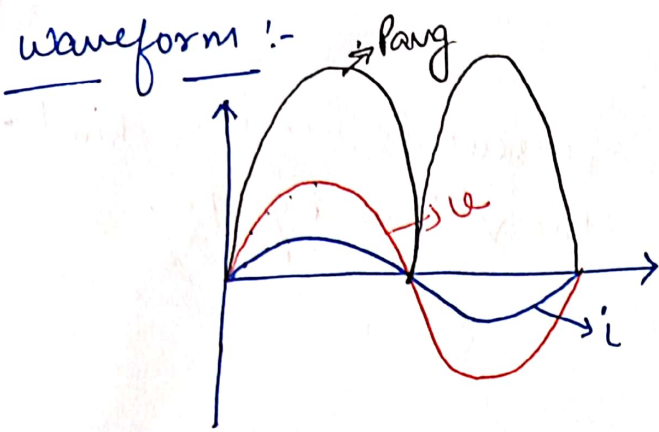 waveform :-
Pavg
v
i